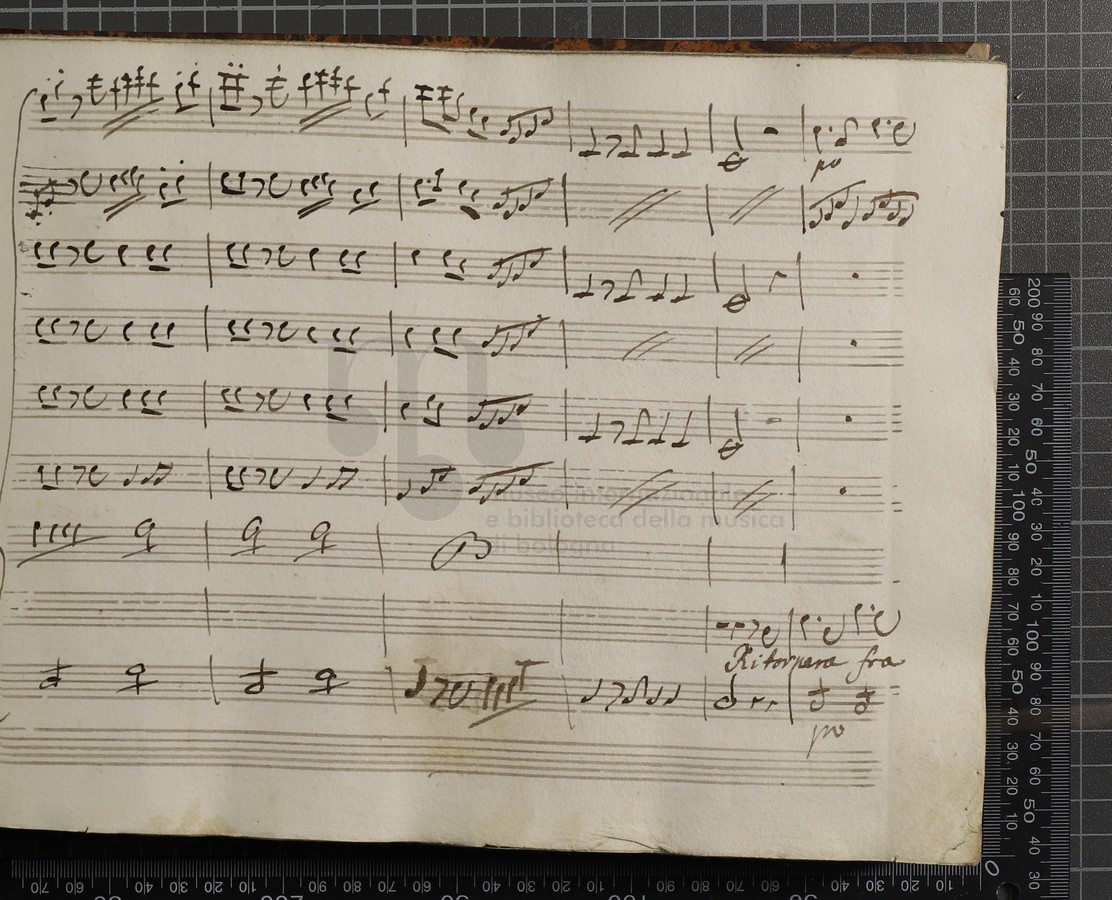 po
museo internazionale
e biblioteca della musica
di bologna
Ritornera fra
po